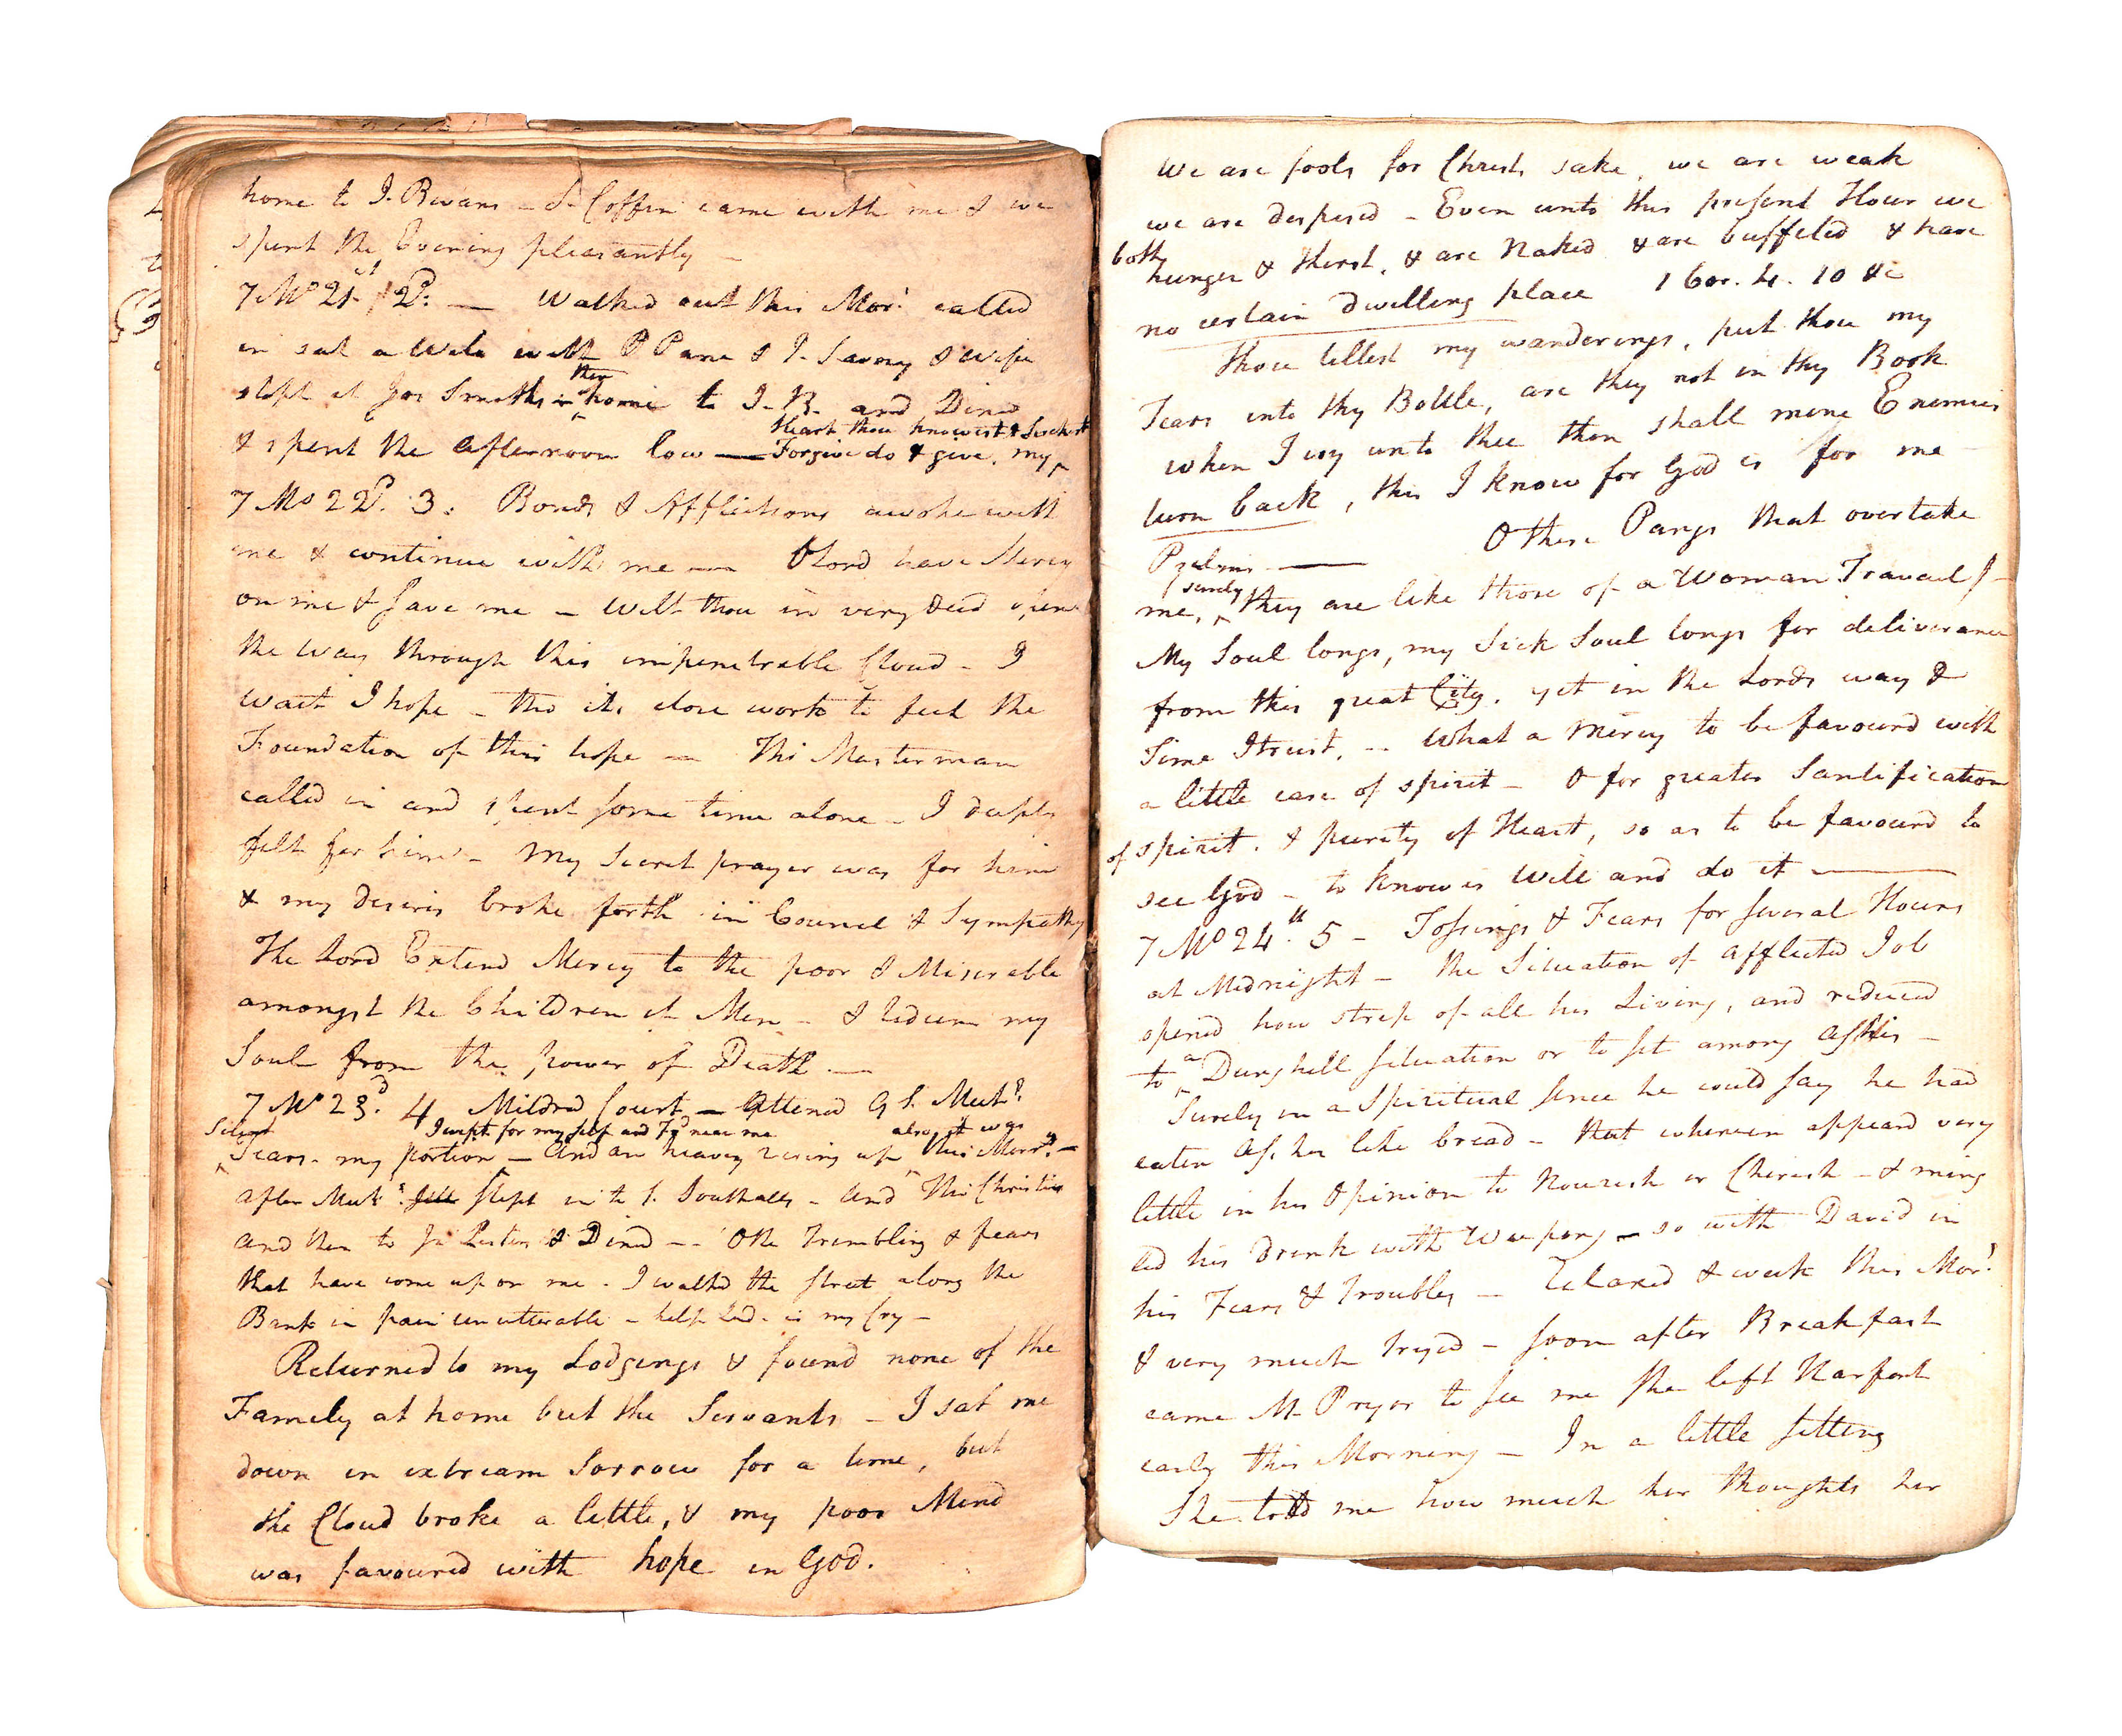 home to J. Bevans - S. Coffin came with me & we
spent the Evening pleasantly -
7 Mo 21st / 2d: - Walked out this Mor: called
in sat a While with P Pane & J. Savery & Wife
then
stept at Jos Smiths home to J. B. and Dined
Heart thou knowest & Searchest
& spent the afternoon low - Forgive do & give, my
7 Mo 22d. 3: Bonds & Afflictions awoke with
me & continue with me - O Lord have Mercy
on me & Save me - Wilt thou in very deed open
the way through this impenetrable Cloud - I
wait I hope - tho its close work to feel the
Foundation of this hope - Tho Masterman
called in and spent some time alone - I deeply
felt for him - My Secret prayer was for him
& my desires broke forth in Councel & Sympathy
The Lord Extend Mercy to the poor & Miserable
amongst the Children of Men - & redeem my
Soul from the power of Death -
7 Mo 23d. 4 Mildred Court - Attend G S. Meetg
Silent I wept for my self and Fds near me also it was
Tears - my portion - And an heavy rising up this Morng -
after Meetg stept in to S. Southalls - and Tho Christies
and then to Ja Lesters & Dined - O the Trembling & fears
that have come up on me - I walked the street along the
Bank in pain unutterable - help Lord - is my Cry -
Returned to my Lodgings & found none of the
Family at home but the Servants - I sat me
down in extream Sorrow for a time, but
the Cloud broke a little, & my poor Mind
was favoured with hope in God.
We are fools for Christs sake, we are weak
we are despised - Even unto this present Hour we
both
hunger & thirst, & are Naked & are buffeted & have
no certain dwelling place 1 Cor. 4. 10 &c
Thou tellest my wanderings, put thou my
Tears into thy Bottle, are they not in thy Book
when I cry unto thee then shall mine Enemies
turn back, this I know for God is for me -
Psalms - O these Pangs that overtake
surely
me, they are like those of a Woman Travail /-
My Soul longs, my Sick Soul longs for deliverance
from this great City. yet in the Lords way &
Time I trust, - What a Mercy to be favourd with
a little ease of spirit - O for greater Santification
of spirit. & purity of Heart, so as to be favourd to
see God - to know is Will and do it -
7 Mo 24th. 5 - Tossings & Fears for several Hours
at Midnight - the Situation of afflicted Job
opened how strip of all his Living, and reduced
a
to Dunghill situation or to sit among Ashes -
Surely in a Spiritual sense he could say he had
eaten Ashes like bread - that wherein appeard very
little in his Opinion to Nourish or Cherish - & ming
led his drink with Weeping - so with David in
his Fears & Troubles - Relaxed & weak this Mor:
& very much tryed - soon after Breakfast
came M. Pryor to see me she left Harford
early this Morning - In a little sitting
She told me how much her thoughts her